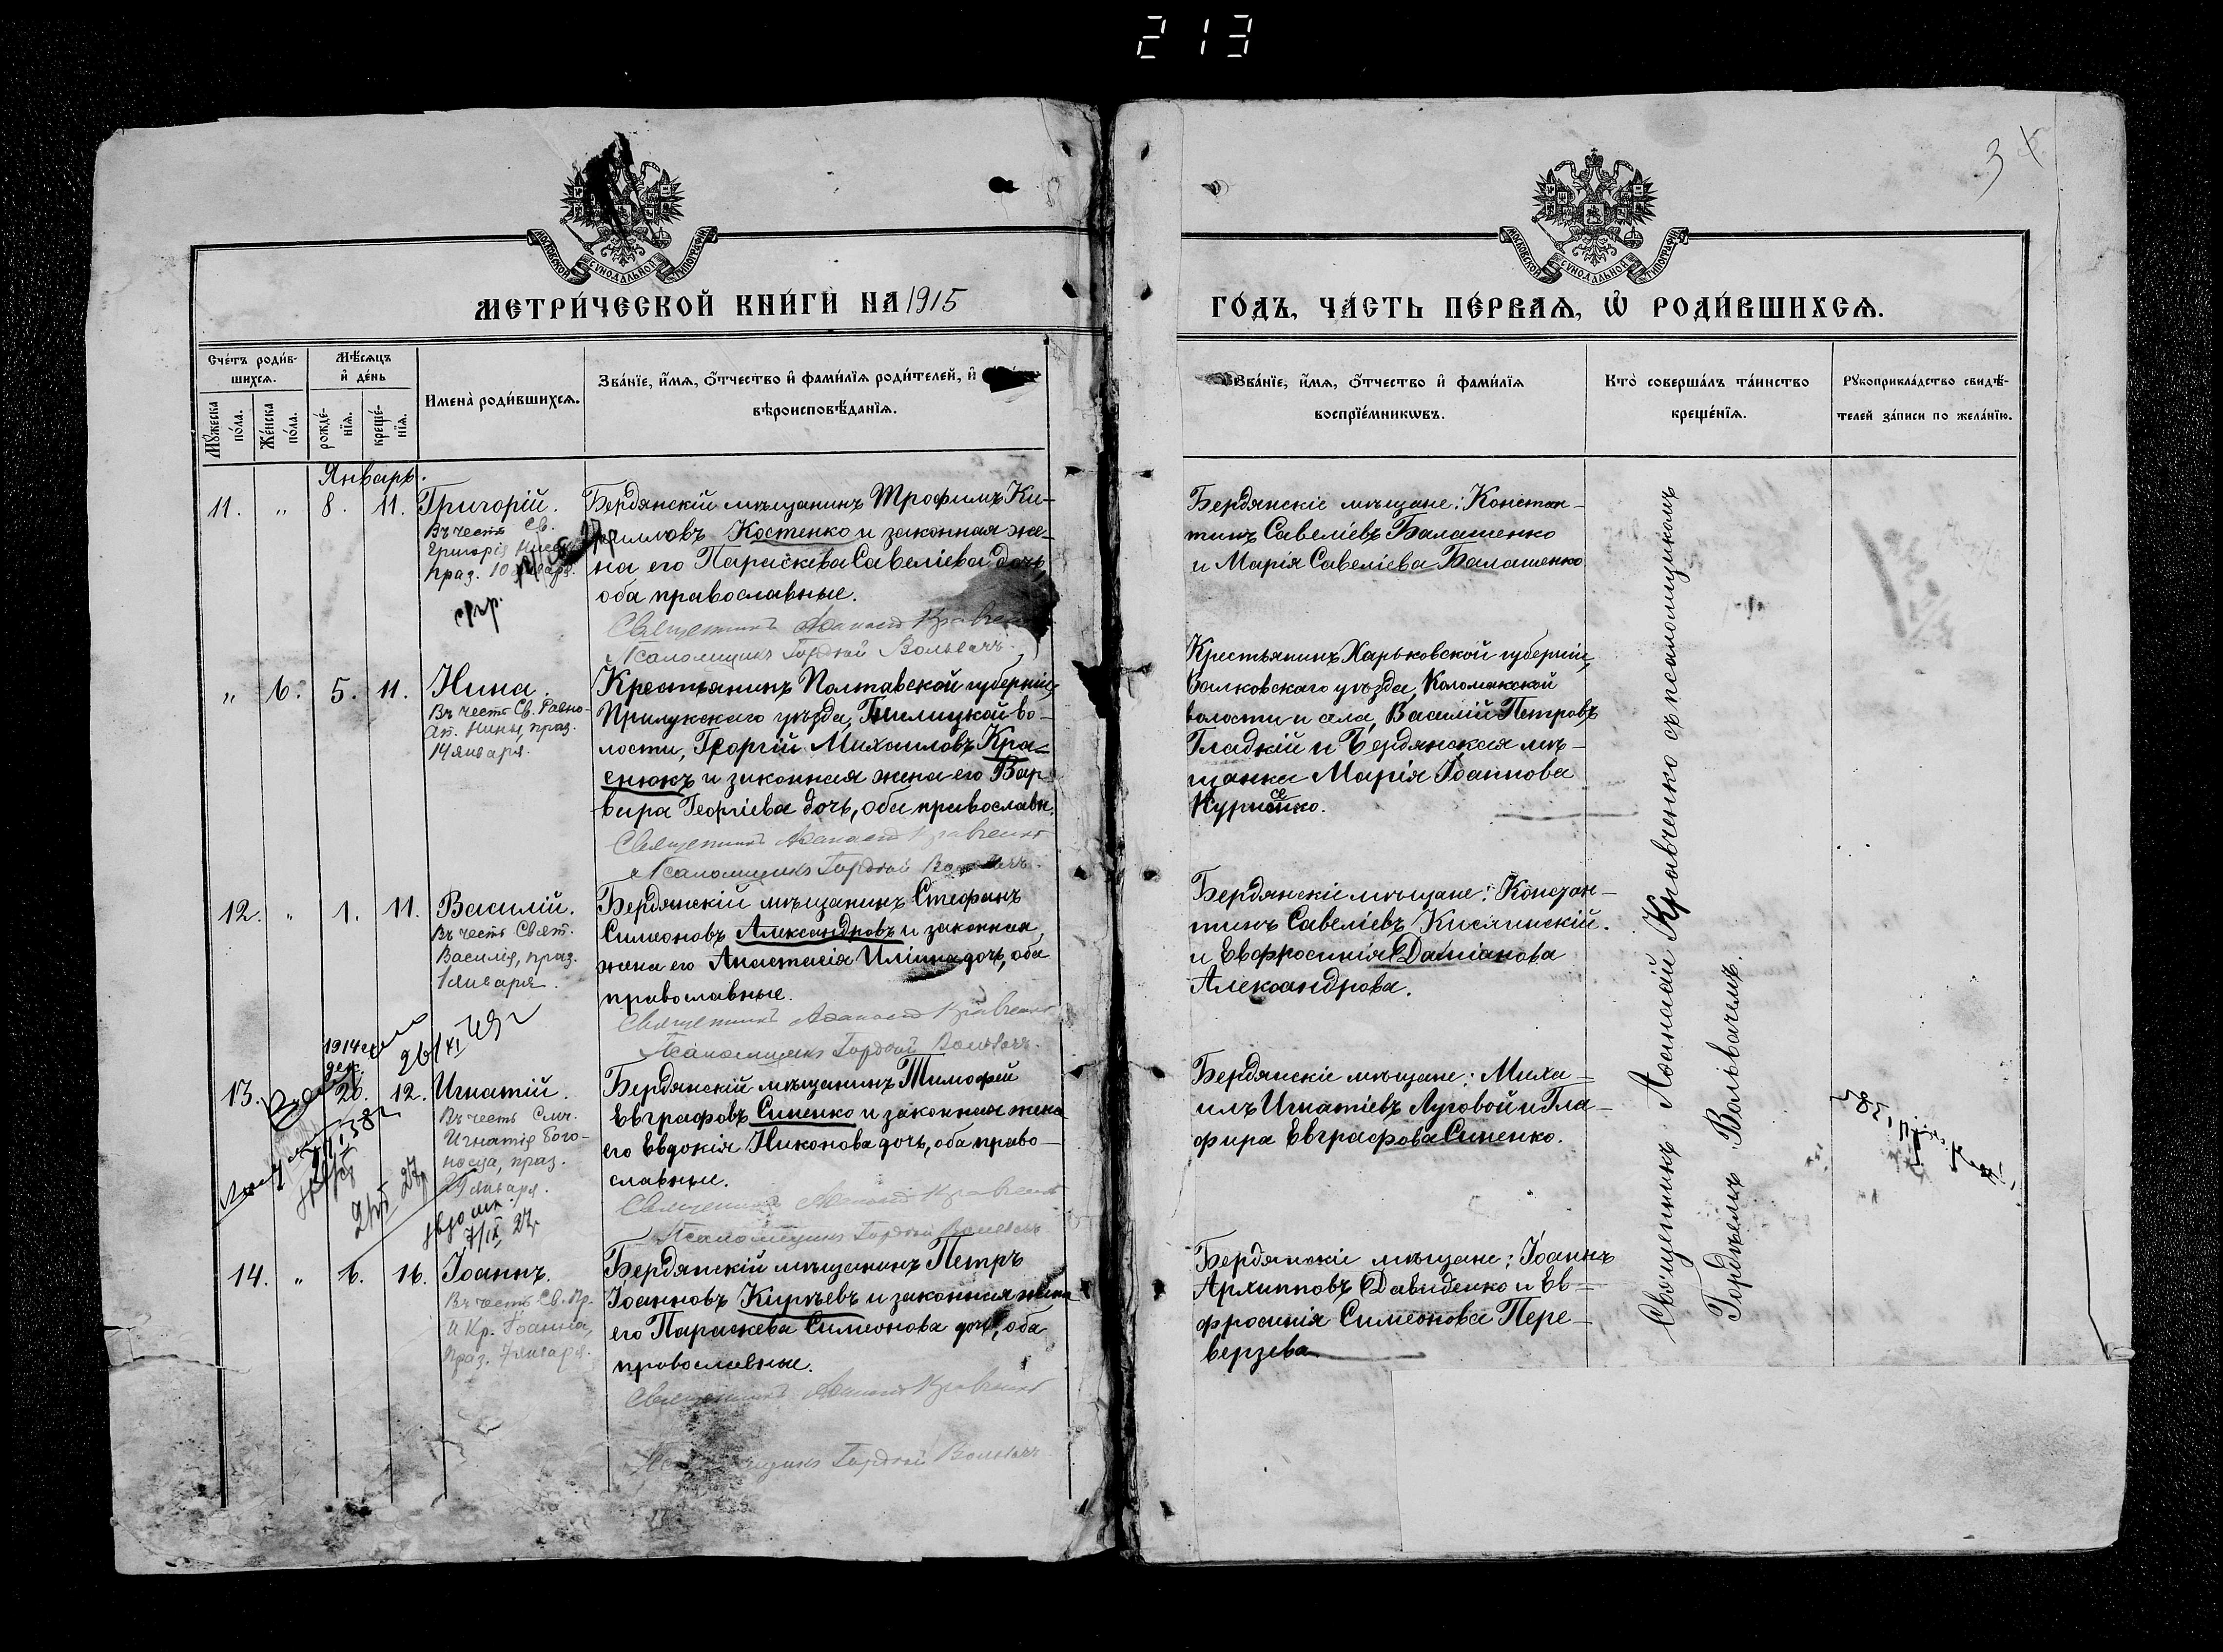 213
3
МОСКОВСКОЙ СѴНОДАЛЬНОЙ ТИПОГРАФІИ
МОСКОВСКОЙ СѴНОДАЛЬНОЙ ТИПОГРАФІИ
МЕТРИ́ЧЕСКОЙ КНИ́ГИ НА 1915
ГО́ДЪ, ЧА́СТЬ ПЕ́РВАѦ, Ѽ РОДИ́ВШИХСѦ.
Сче́тъ роди́в-
шихсѧ.
Мꙋ́жеска
по́ла.
Же́нска
по́ла.
Мѣ́сѧцъ
и҆ де́нь
рожде́-
нїѧ.
креще́-
нїѧ.
И҆мена̀ роди́вшихсѧ.
Зва́нїе, и҆́мѧ, ѻ҆́тчество и҆ фами́лїѧ роди́телей, и҆
вѣроисповѣ́данїѧ.
Зва́нїе, и҆́мѧ, ѻ҆́тчество и҆ фами́лїѧ
воспрїе́мникѡвъ.
Кто̀ соверша́лъ та́инство
креще́нїѧ.
Рꙋкоприкла́дство свидѣ́-
телей за́писи по жела́нїю.
Январь.
11. " 8. 11. Григорій.
Въ честь Св.
Григорія
праз. 10 января.
Бердянскій мѣщанинъ Трофимъ Ки-
рилловъ Костенко и законная же-
на его Параскева Савеліева дочь,
оба православные.
Священникъ Аѳанасій Кравченко
Псаломщикъ Гордѣй Вольвачъ.
Бердянскіе мѣщане: Констан-
тинъ Савеліевъ Балашенко
и Марія Савеліева Балашенко
" 6. 5. 11. Нина.
Въ честь Св. Равно-
Ап. Нины, праз.
14 января.
Крестьянинъ Полтавской губерніи,
Прилукскаго уѣзда, во-
лости, Георгій Михаиловъ Кра-
снюкъ и законная жена его Вар-
вара Георгіева дочь, оба православн.
Священникъ Аѳанасій Кравченко
Псаломщикъ Гордѣй Вольвачъ.
Крестьянинъ Харьковской губерніи,
Валковскаго уѣзда, Коломакской
волости и села, Василій Петровъ
Гладкій и Бердянская мѣ-
щанка Марія Іоаннова
12. " 1. 11. Василій.
Въ честь Свят.
Василія, праз.
1 января.
Бердянскій мѣщанинъ Стефанъ
Симеоновъ Александровъ и законная
жена его Анастасія Иліина дочь, оба
православные.
Священникъ Аѳанасій Кравченко
Псаломщикъ Гордѣй Вольвачъ.
Бердянскіе мѣщане: Констан-
тинъ Савеліевъ Кислинскій.
и Евфросинія Даміанова
Александрова.
1914 г.
дек.
13. 26. 12. Игнатій.
Въ честь Свщ.
Игнатія Бого-
носца, праз.
29 января.
Бердянскій мѣщанинъ Тимофей
Евграфовъ Синенко и законная жена
его Евдокія Никонова дочь, оба право-
славные.
Священникъ Аѳанасій Кравченко
Псаломщикъ Гордѣй Вольвачъ.
Бердянскіе мѣщане: Миха-
илъ Игнатіевъ Луговой и Гла-
фира Евграфова Синенко.
14. " 6. 16. Іоаннъ.
Въ честь Св. Пр.
и Кр. Іоанна,
праз. 7 января.
Бердянскій мѣщанинъ Петръ
Іоанновъ Кирѣевъ и законная жена
его Параскева Симеонова дочь, оба
православные.
Священникъ Аѳанасій Кравченко
Псаломщикъ Гордѣй Вольвачъ.
Бердянскіе мѣщане: Іоаннъ
Архипповъ Давиденко и Ев-
фросинія Симеонова Пере-
верзева
Священникъ Аѳанасій Кравченко съ псаломщикомъ
Гордѣемъ Вольвачемъ.